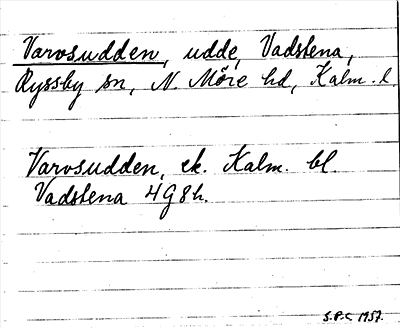 Varvsudden, udde, Vadstena,
Ryssby sn, N. Möre hd, Kalm. l.
Varvsudden, ek. Kalm. bl.
Vadstena 4 G 8 h.
S.P.C 1957.